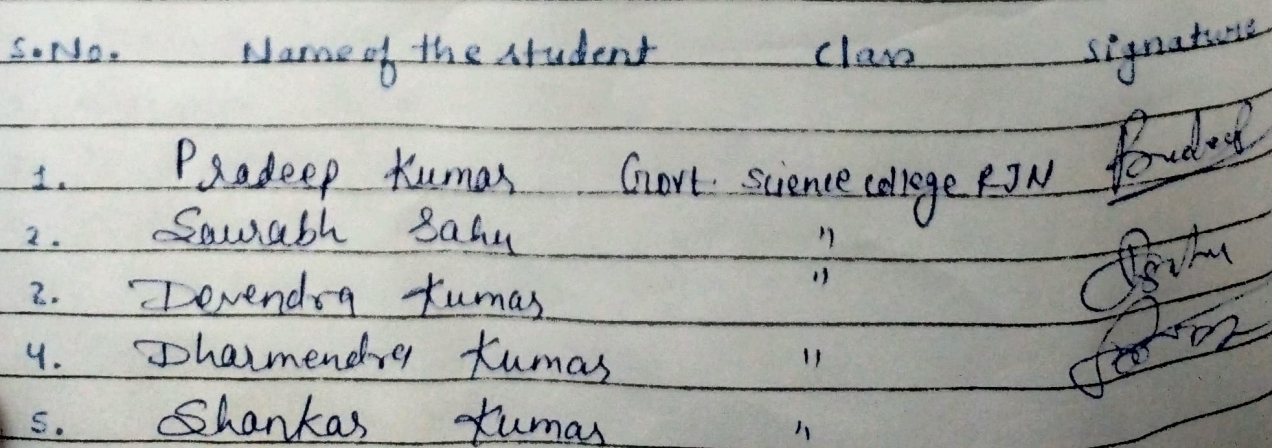 S.No. Name of the student Class Signature
1. Pradeep Kumar Govt. Science college RJN Pradeep
2. Saurabh Sahu " Sahu
2. Devendra Kumar "
4. Dharmendra Kumar "
5. Shankar Kumar "